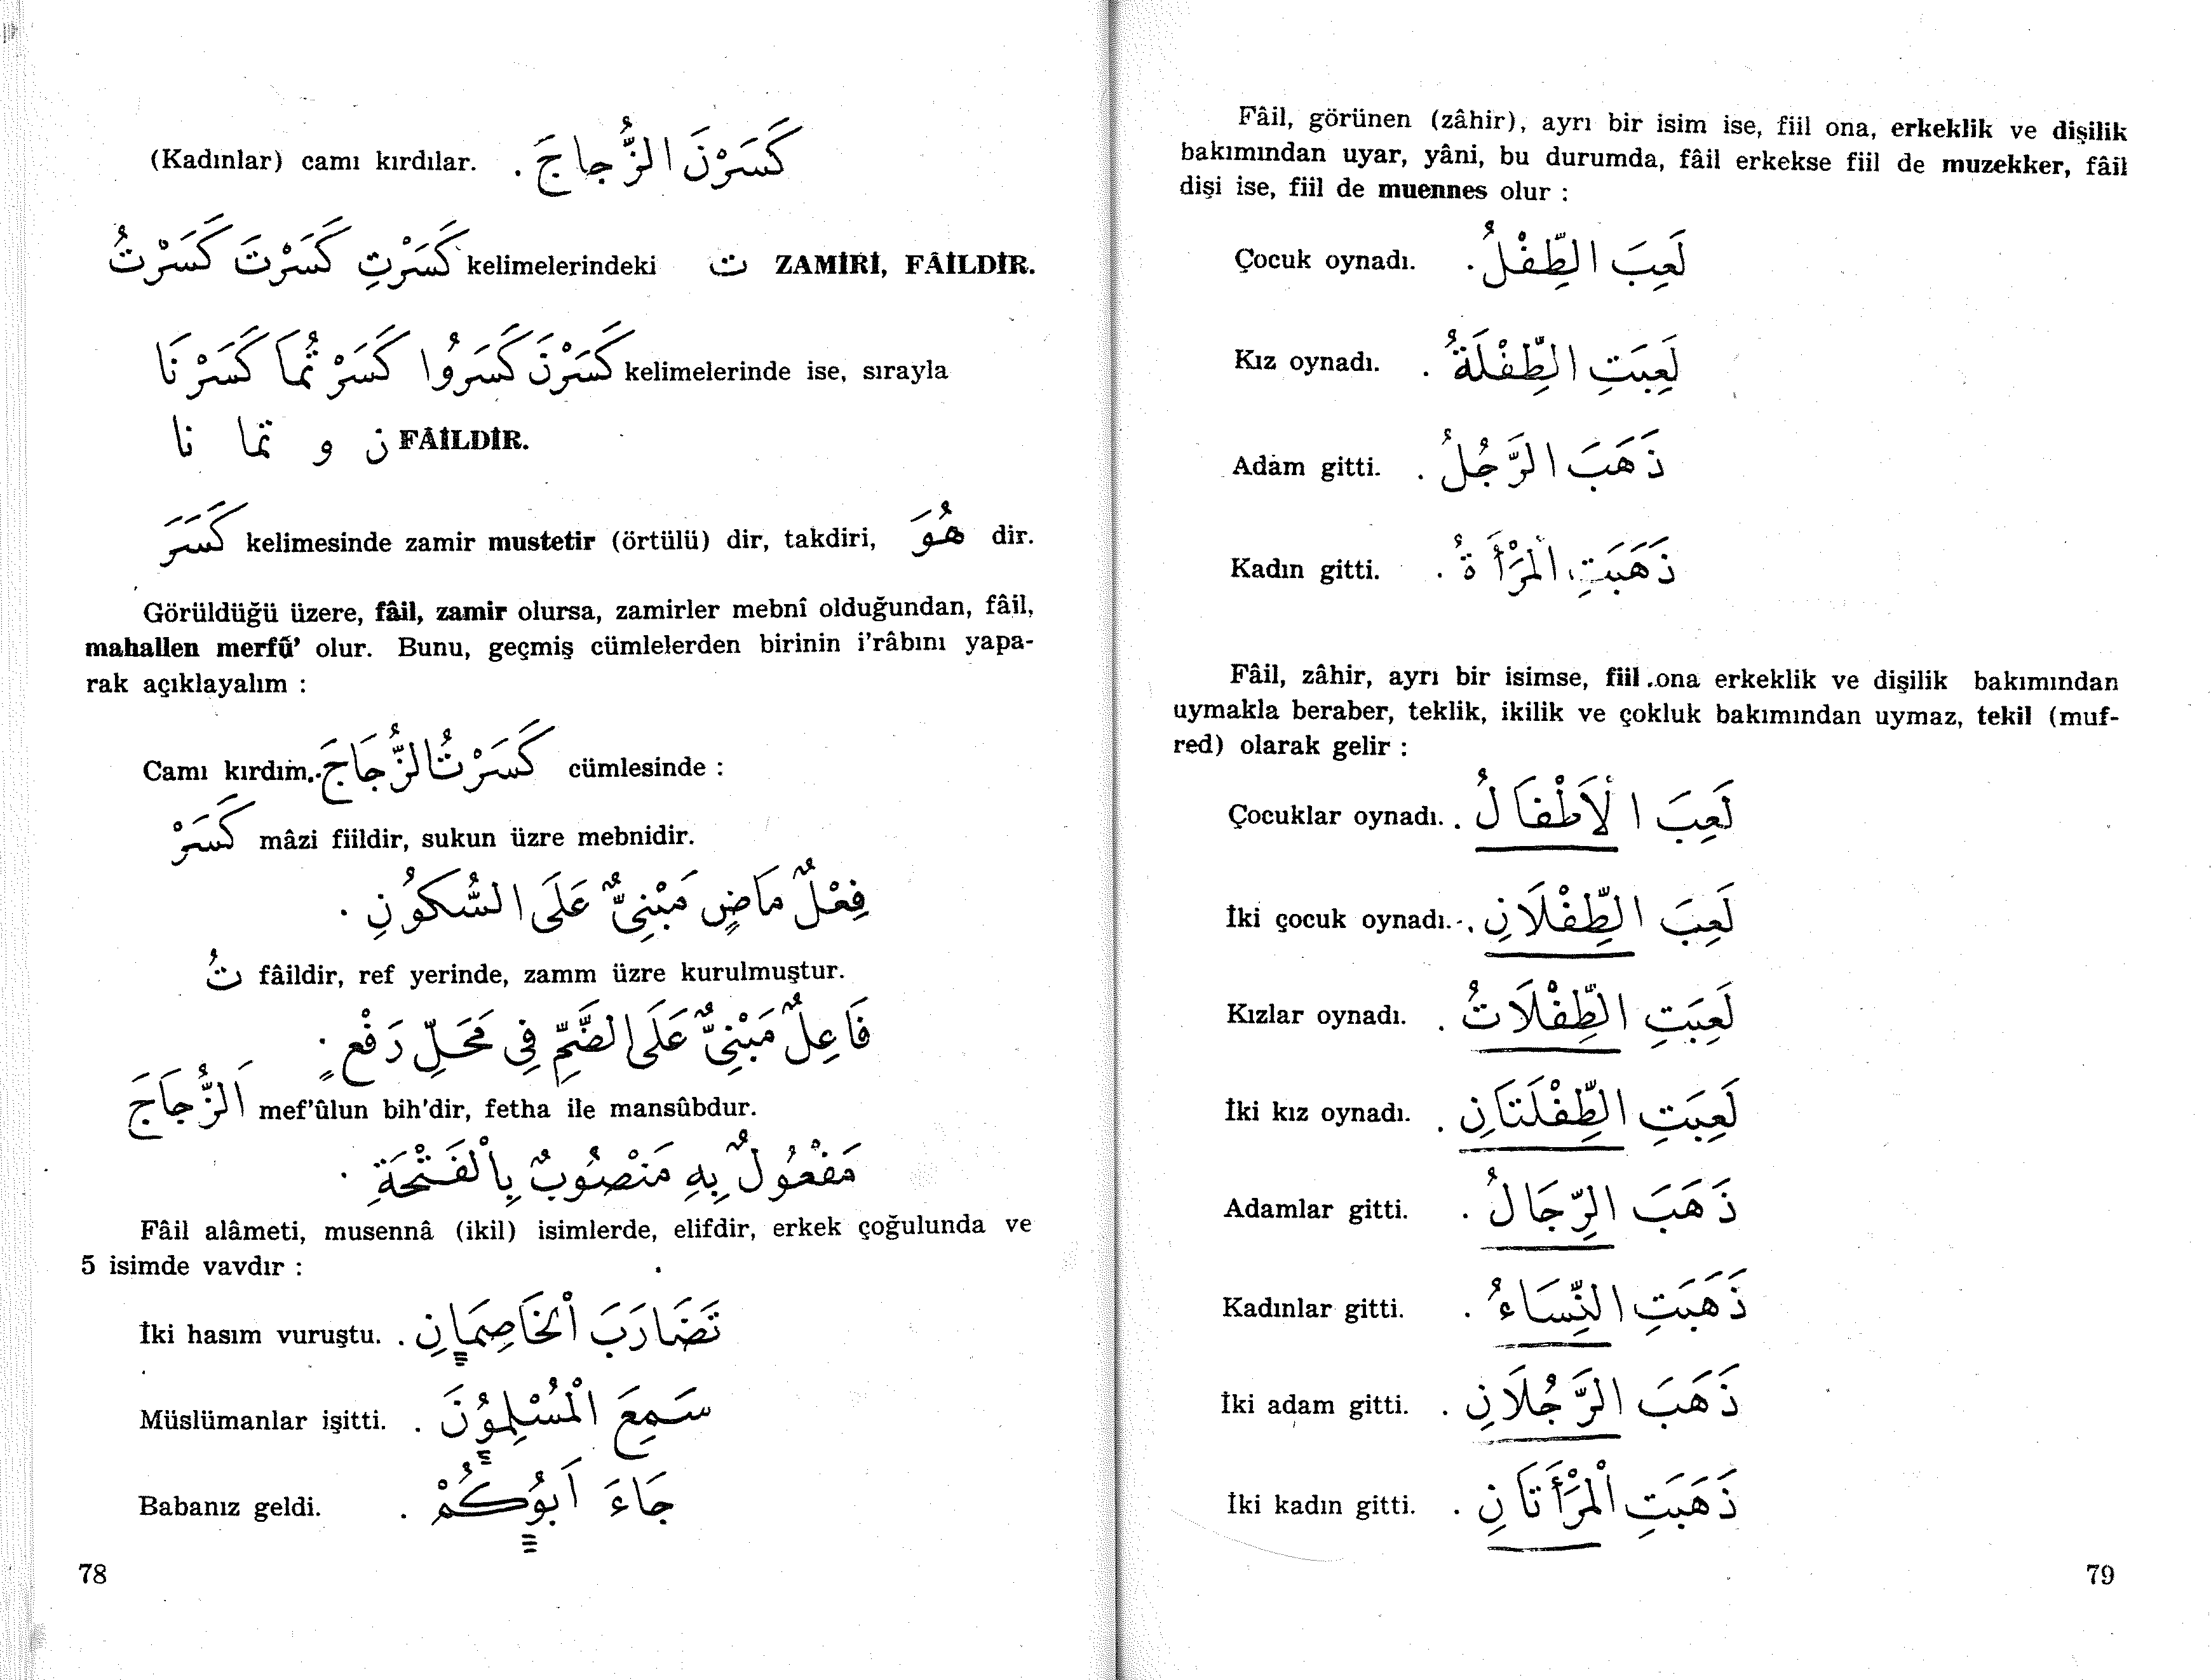 (Kadınlar) camı kırdılar. كَسَرْنَ الزُّجاجَ .
كَسَرْتُ كَسَرْتَ كَسَرْتِ kelimelerindeki ت ZAMİRİ, FÂİLDİR.
كَسَرْنَا كَسَرْتُمَا كَسَرُوا كَسَرْنَ kelimelerinde ise, sırayla
نا تما و ن FÂİLDİR.
كَسَرَ kelimesinde zamir mustetir (örtülü) dir, takdiri, هُوَ dir.
Görüldüğü üzere, fâil, zamir olursa, zamirler mebnî olduğundan, fâil,
mahallen merfû' olur. Bunu, geçmiş cümlelerden birinin i'râbını yapa-
rak açıklayalım :
Camı kırdım. كَسَرْتُ الزُّجَاجَ cümlesinde :
كَسَرْ mâzi fiildir, sukun üzre mebnidir.
فِعْلٌ مَاضٍ مَبْنِىٌّ عَلَى السُّكُونِ .
تُ fâildir, ref yerinde, zamm üzre kurulmuştur.
فَاعِلٌ مَبْنِىٌّ عَلَى الضَّمِّ فِى مَحَلِّ رَفْعٍ .
اَلزُّجَاجَ mef'ûlun bih'dir, fetha ile mansûbdur.
مَفْعُولٌ بِهِ مَنْصُوبٌ بِالْفَتْحَةِ .
Fâil alâmeti, musennâ (ikil) isimlerde, elifdir, erkek çoğulunda ve
5 isimde vavdır :
İki hasım vuruştu. تَضَارَبَ الْخَاصِمَانِ .
Müslümanlar işitti. سَمِعَ الْمُسْلِمُونَ .
Babanız geldi. جَاءَ اَبُوكُمْ .
78
Fâil, görünen (zâhir), ayrı bir isim ise, fiil ona, erkeklik ve dişilik
bakımından uyar, yâni, bu durumda, fâil erkekse fiil de muzekker, fâil
dişi ise, fiil de muennes olur :
Çocuk oynadı. لَعِبَ الطِّفْلُ .
Kız oynadı. لَعِبَتِ الطِّفْلَةُ .
Adam gitti. ذَهَبَ الرَّجُلُ .
Kadın gitti. ذَهَبَتِ الْمَرْأَةُ .
Fâil, zâhir, ayrı bir isimse, fiil ona erkeklik ve dişilik bakımından
uymakla beraber, teklik, ikilik ve çokluk bakımından uymaz, tekil (muf-
red) olarak gelir :
Çocuklar oynadı. لَعِبَ الْاَطْفَالُ .
İki çocuk oynadı. لَعِبَ الطِّفْلَانِ .
Kızlar oynadı. لَعِبَتِ الطِّفْلَاتُ .
İki kız oynadı. لَعِبَتِ الطِّفْلَتَانِ .
Adamlar gitti. ذَهَبَ الرِّجَالُ .
Kadınlar gitti. ذَهَبَتِ النِّسَاءُ .
İki adam gitti. ذَهَبَ الرَّجُلَانِ .
İki kadın gitti. ذَهَبَتِ الْمَرْأَتَانِ .
79